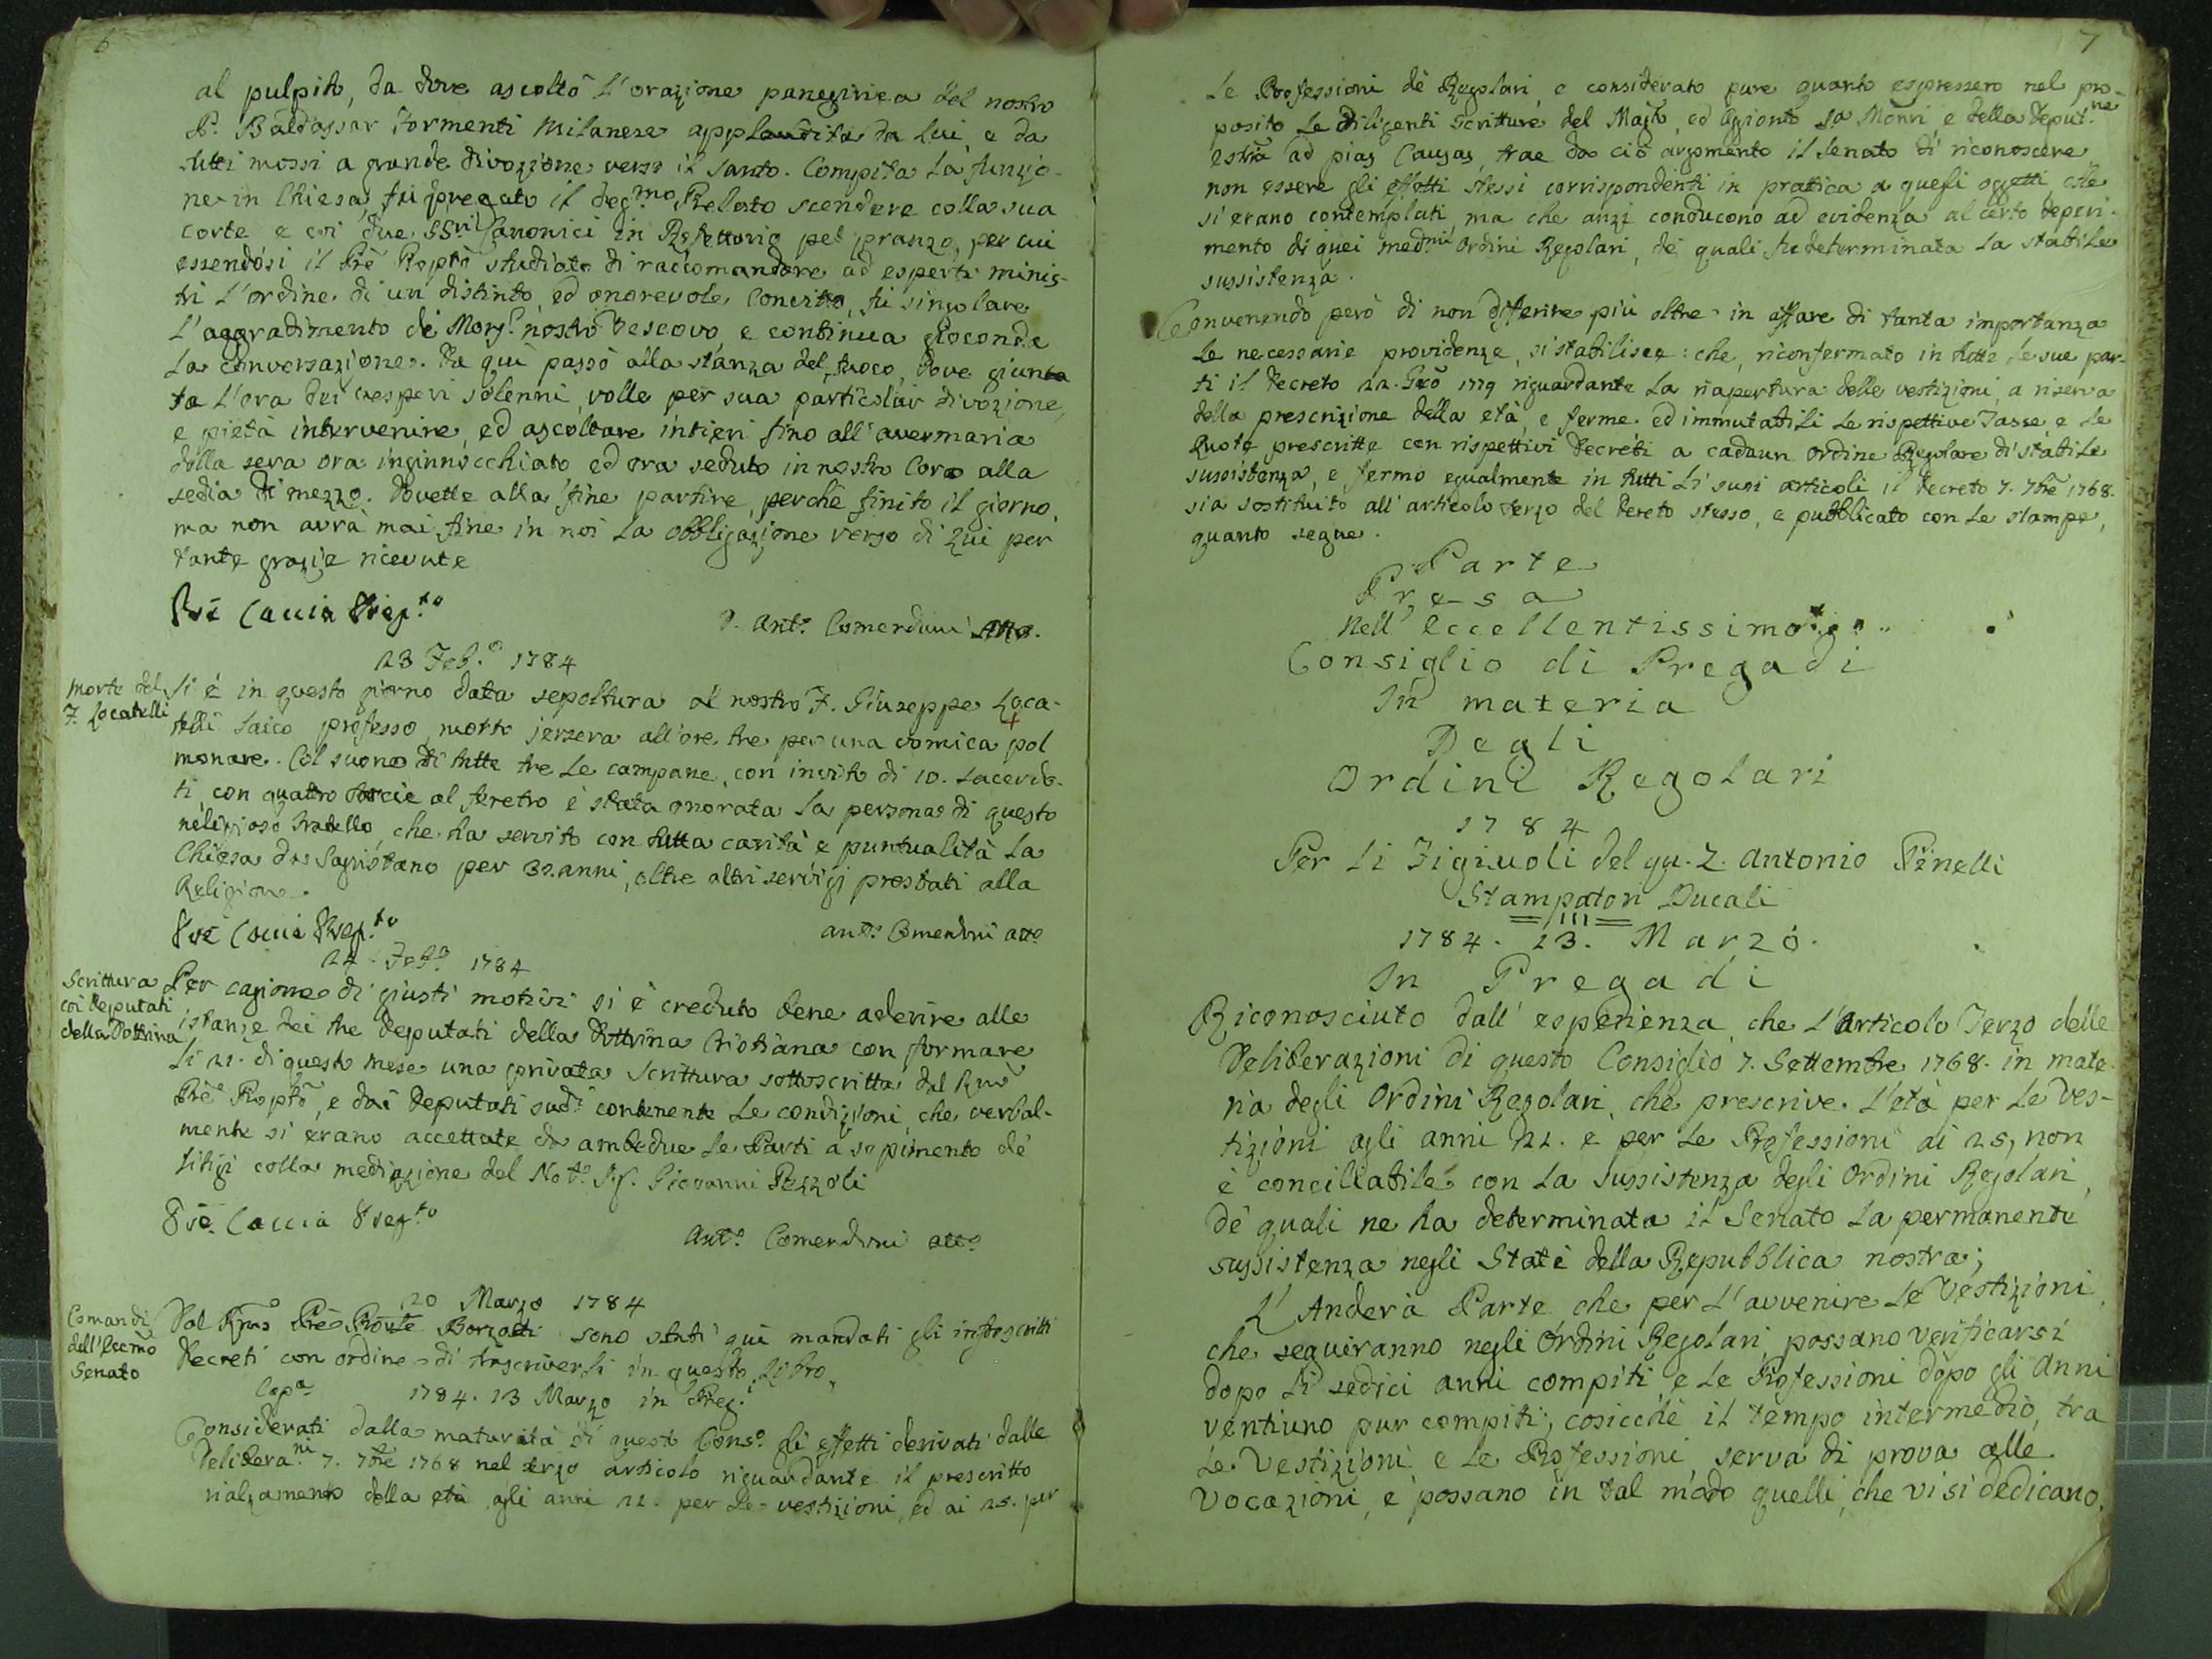 6
al pulpito, da dove ascoltò l'orazione panegirica del nostro
P. Baldassar Formenti Milanese applaudita da lui, e da
tutti mossi a grande divozione verso il Santo. Compita la funzio-
ne in Chiesa fu pregato il deg.mo Prelato scendere colla sua
corte e coi due SS.ri Canonici in Refettorio pel pranzo, per cui
essendosi il Prē Ptō studiato di raccomandare ad esperti minis-
tri l'ordine di un distinto, ed onorevole Convitto, fu singolare
l'aggradimento di Mons.r nostro Vescovo e continua gioconda
la conversazione. Da qui passò alla stanza del fuoco, dove giunta
ta l'ora dei vesperi solenni, volle per sua particolar divozione,
e pietà intervenire, ed ascoltare intieri fino all'avemaria
della sera ora inginnocchiato ed ora seduto in nostro Coro alla
sedia di mezzo. Dovette alla fine partire, perchè finito il giorno,
ma non avrà mai fine in noi la obbligazione verso di Lui per
tante grazie ricevute
Caccia Prep.to
D. Ant.o Comenduni Atto.
23 Feb.o 1784
Morte del
F. Locatelli
Si è in questo giorno data sepoltura al nostro F. Giuseppe Loca-
telli laico professo, morto jersera all'ore tre per una vomica pol
monare. Col suono di tutte tre le campane, con invito di 10. Sacerdo-
ti, con quattro torcie al feretro è stata onorata la persona di questo
religioso fratello, che ha servito con tutta carità e puntualità la
Chiesa da Sagristano per 32. anni, oltre altri servigi prestati alla
Religione.
Caccia Prep.to
Ant.o Comenduni att.o
24 Feb.o 1784
Scrittura
coi Deputati
della Dottrina
Per cagione di giusti motivi si è creduto bene aderire alle
istanze dei tre deputati della Dottrina Cristiana con formare
li 21. di questo mese una privata Scrittura sottoscritta dal
Prē, e dai Deputati sud.i contenente le condizioni, che verbal-
mente si erano accettate da ambedue le Parti a sopimento de'
litigi colla mediazione del Not.o Sig. Giovanni Pezzoli
Caccia Prep.to
Ant.o Comenduni att.o
20 Marzo 1784
Comandi
dell'Eccmō
Senato
Dal Rmō Prē Borzatti sono stati quì mandati gl'infrascritti
Decreti con ordine di trascriverli in questo Libro
Cop.a 1784. 13 Marzo in Preg.i
Considerati dalla maturità di questo Cons.o gli effetti derivati dalle
Delibera.ni 7. 7brē 1768 nel terzo articolo riguardante il prescritto
rialzamento della età agli anni 21. per le vestizioni, ed ai 25. per
7
le Professioni de' Regolari, e considerato pure quanto espressero nel pro-
posito le diligenti scritture del Mag.to, ed Aggionto s.a Mon.ri e della Deput.ne
estrā ad pias Causas, trae da ciò argomento il Senato di riconoscere
non essere gli effetti stessi corrispondenti in prattica a quegli oggetti, che
si erano contemplati, ma che anzi conducono ad evidenza al certo deperi-
mento di quei med.mi Ordini Regolari, de' quali fu determinata la stabile
sussistenza.
Convenendo però di non differire più oltre in affare di tanta importanza
le necessarie providenze, si stabilisce: che, riconfermato in tutte le sue par-
ti il decreto 22. 1779 riguardante la riapertura delle vestizioni, a riserva
della prescrizione della età, e ferme ed immutabili le rispettive Tasse, e le
Quote prescritte con rispettivi Decreti a cadaun Ordine Regolare di stabile
sussistenza, e fermo egualmente in tutti li suoi articoli il Decreto 7. 7brē 1768.
sia sostituito all'articolo terzo del Dereto stesso, e pubblicato con le stampe,
quanto segue.
Parte
Presa
Nell'Eccellentissimo
Consiglio di Pregadi
In materia
Degli
Ordini Regolari
1784
Per li Figliuoli del qu. Z. Antonio Pinelli
Stampatori Ducali
1784. 13. Marzo.
In Pregadi
Riconosciuto dall'esperienza, che l'Articolo Terzo delle
Deliberazioni di questo Consiglio 7. Settembre 1768. in mate-
ria degli Ordini Regolari, che prescrive l'età per le Ves-
tizioni agli anni 21. e per le Professioni ai 25, non
è conciliabile con la sussistenza degli Ordini Regolari,
de' quali ne ha determinata il Senato la permanente
sussistenza negli Stati della Repubblica nostra;
L'Anderà Parte che per l'avvenire le Vestizioni,
che seguiranno negli Ordini Regolari, possano verificarsi
dopo li sedici anni compiti, e le Professioni dopo gli Anni
ventiuno pur compiti, cosicchè il tempo intermedio, tra
le Vestizioni, e le Professioni serva di prova alle
Vocazioni, e possano in tal modo quelli, che vi si dedicano,